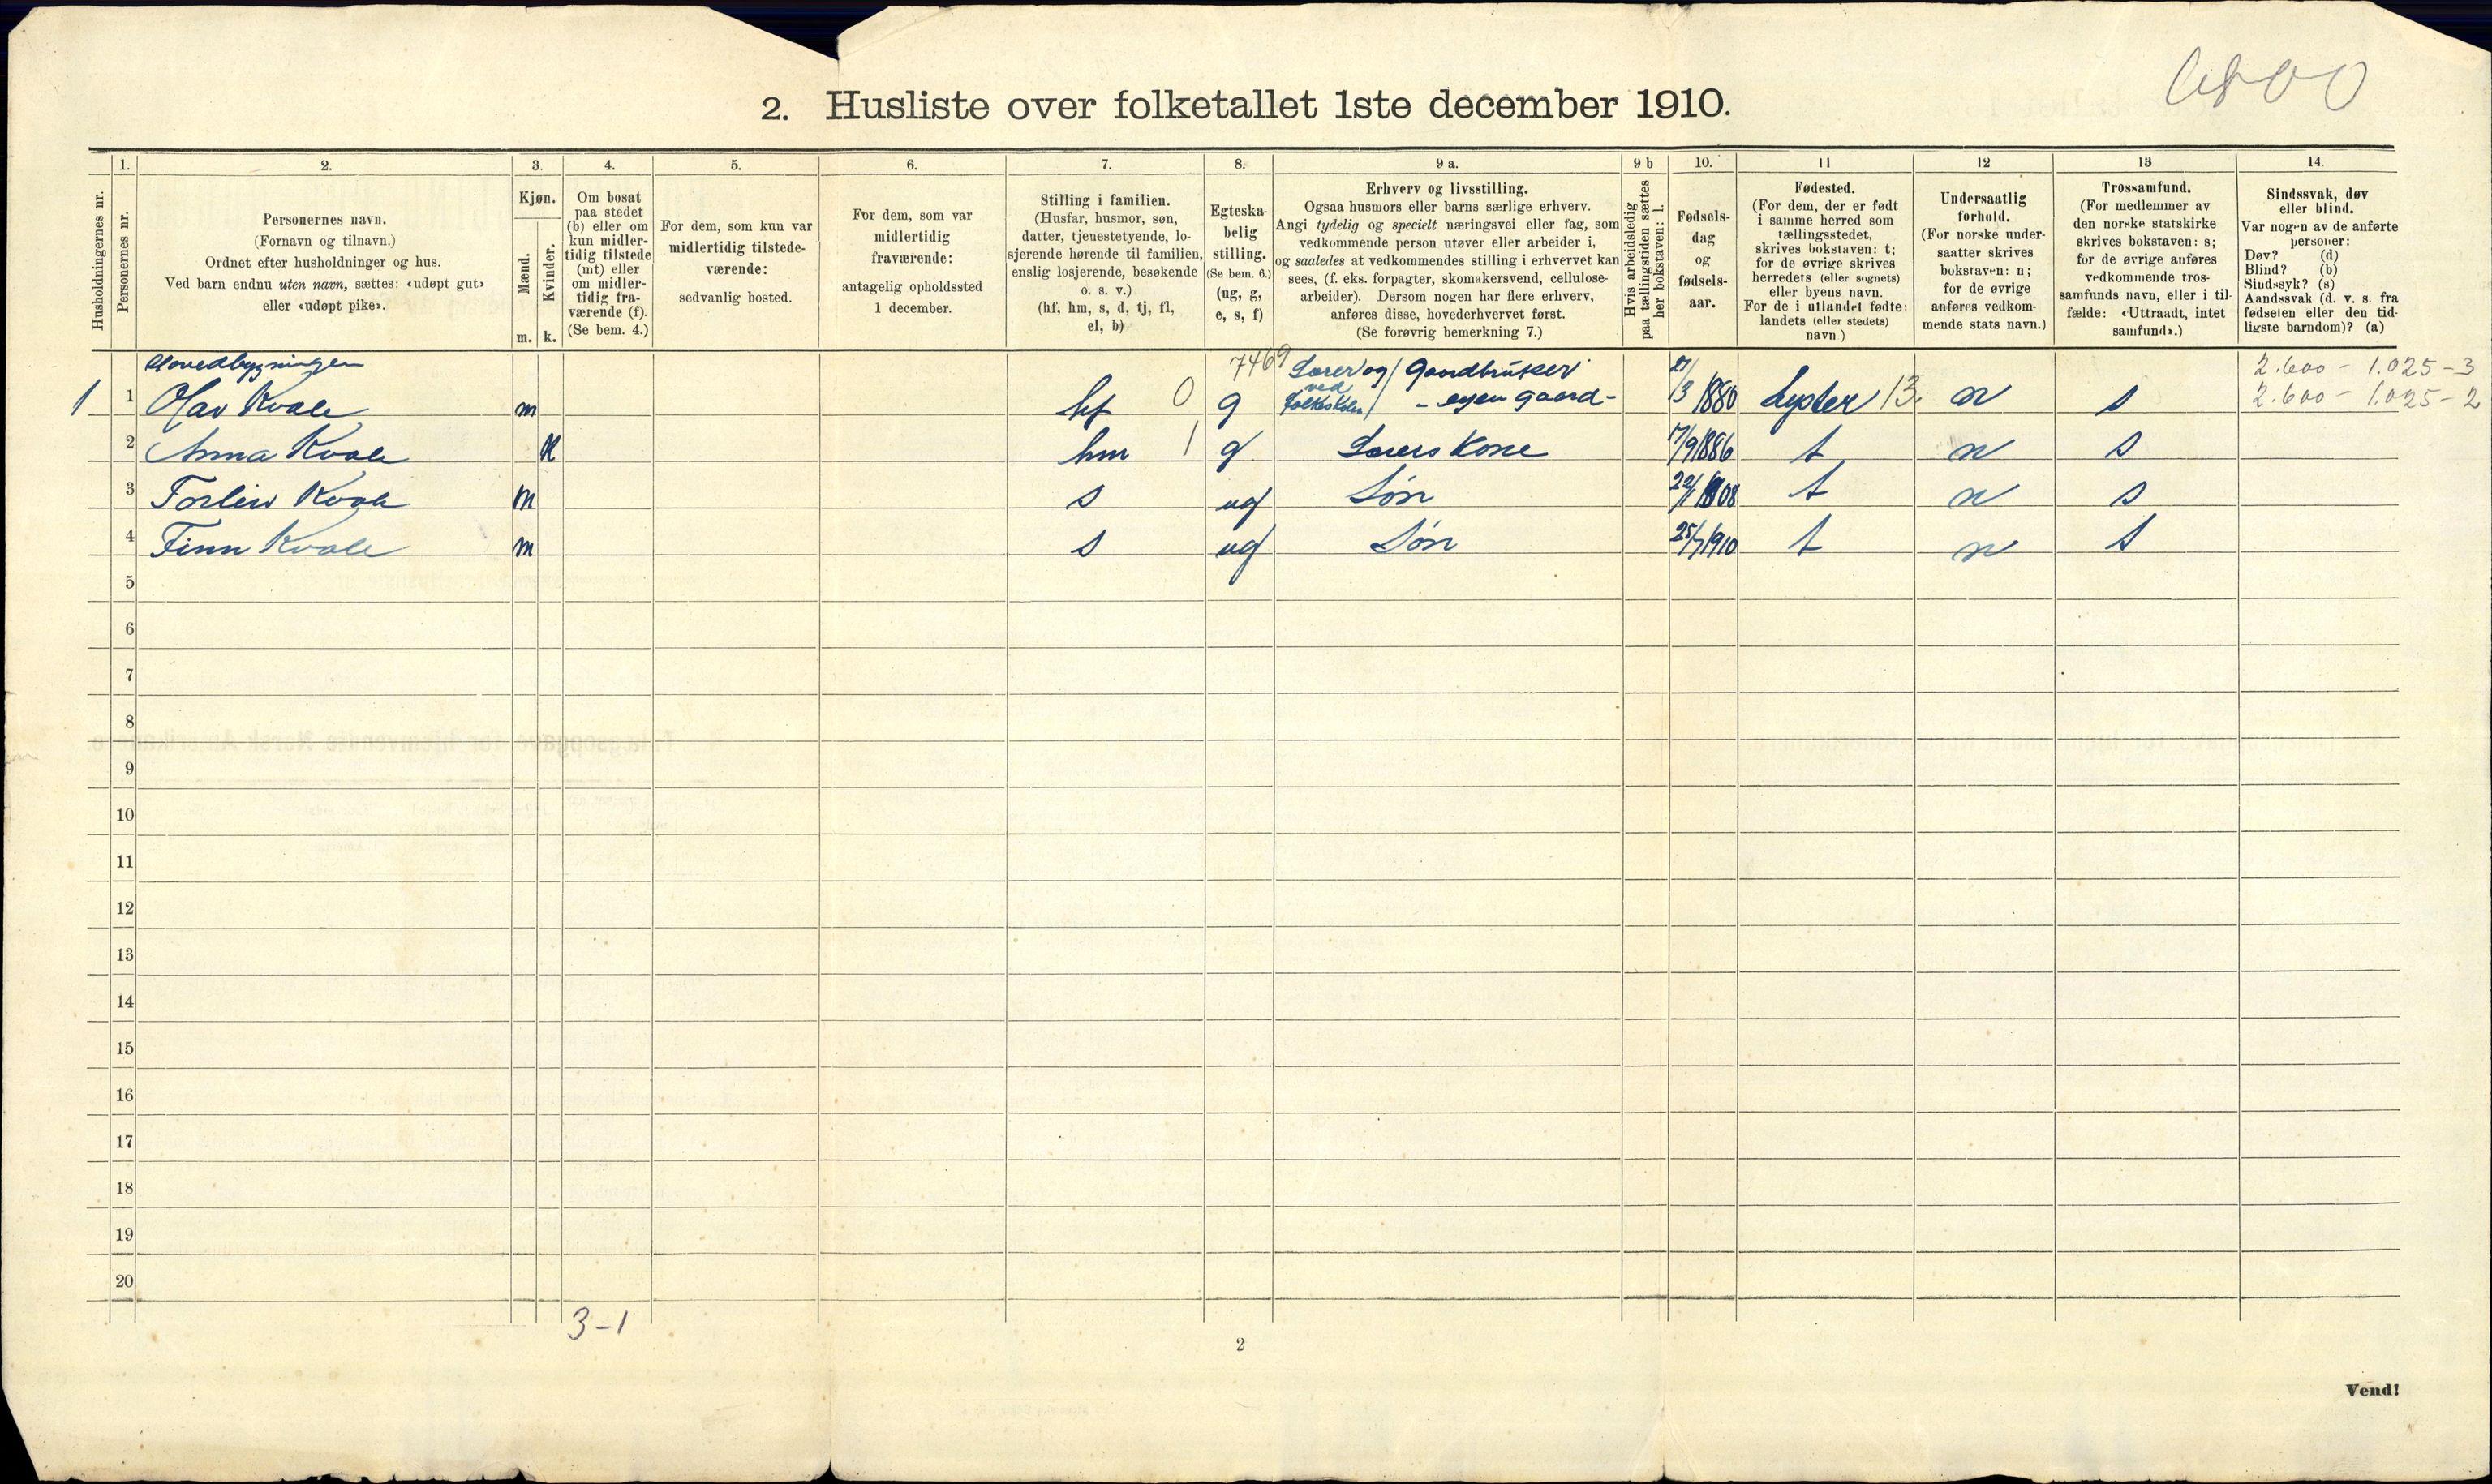 2. Husliste over folketallet 1ste december 1910.
Husholdningernes nr.
1.
Personernes nr.
2.
Personernes navn.
(Fornavn og tilnavn.)
Ordnet efter husholdninger og hus.
Ved barn endnu uten navn, sættes: «udøpt gut»
eller «udøpt pike».
3.
Kjøn.
Mænd.
Kvinder.
m. k.
4.
Om bosat
paa stedet
(b) eller om
kun midler-
tidig tilstede
(mt) eller
om midler-
tidig fra-
værende (f).
(Se bem. 4.)
5.
For dem, som kun var
midlertidig tilstede-
værende:
sedvanlig bosted.
6.
For dem, som var
midlertidig
fraværende:
antagelig opholdssted
1 december.
7.
Stilling i familien.
(Husfar, husmor, søn,
datter, tjenestetyende, lo-
sjerende hørende til familien,
enslig losjerende, besøkende
o. s. v.)
(hf, hm, s, d, tj, fl,
el, b)
8.
Egteska-
belig
stilling.
(Se bem. 6.)
(ug, g,
e, s, f)
9 a.
Erhverv og livsstilling.
Ogsaa husmors eller barns særlige erhverv.
Angi tydelig og specielt næringsvei eller fag, som
vedkommende person utøver eller arbeider i,
og saaledes at vedkommendes stilling i erhvervet kan
sees, (f. eks. forpagter, skomakersvend, cellulose-
arbeider). Dersom nogen har flere erhverv,
anføres disse, hovederhvervet først.
(Se forøvrig bemerkning 7.)
9 b
Hvis arbeidsledig
paa tællingstiden sættes
her bokstaven: l.
10.
Fødsels-
dag
og
fødsels-
aar.
11
Fødested.
(For dem, der er født
i samme herred som
tællingsstedet,
skrives bokstaven: t;
for de øvrige skrives
herredets (eller sognets)
eller byens navn.
For de i utlandet fødte:
landets (eller stedets)
navn)
12
Undersaatlig
forhold.
(For norske under-
saatter skrives
bokstaven: n;
for de øvrige
anføres vedkom-
mende stats navn.)
13
Trossamfund.
(For medlemmer av
den norske statskirke
skrives bokstaven: s;
for de øvrige anføres
vedkommende tros-
samfunds navn, eller i til-
fælde: «Uttraadt, intet
samfund».)
14
Sindssvak, døv
eller blind.
Var nogen av de anførte
personer:
Døv? (d)
Blind? (b)
Sindssyk? (s)
Aandssvak (d. v. s. fra
fødselen eller den tid-
ligste barndom)? (a)
Hovedbygningen 7469 2.600 - 1.025 - 3
1 1 Olav Kvale m hf 0 g Lærer og ved folkeskolen / Gaardbruker - egen gaard - /3 1880 Lyster 13. n s 2.600 - 1.025 - 2
2 Anna Kvale k hm 1 g Lærers Kone 17/9 1886 t n s
3 Torleiv Kvale m s ug Søn 22/1 1908 t n s
4 Finn Kvale m s ug Søn 25/7 1910 t n s
5
6
7
8
9
10
11
12
13
14
15
16
17
18
19
20
3-1
2
Vend!